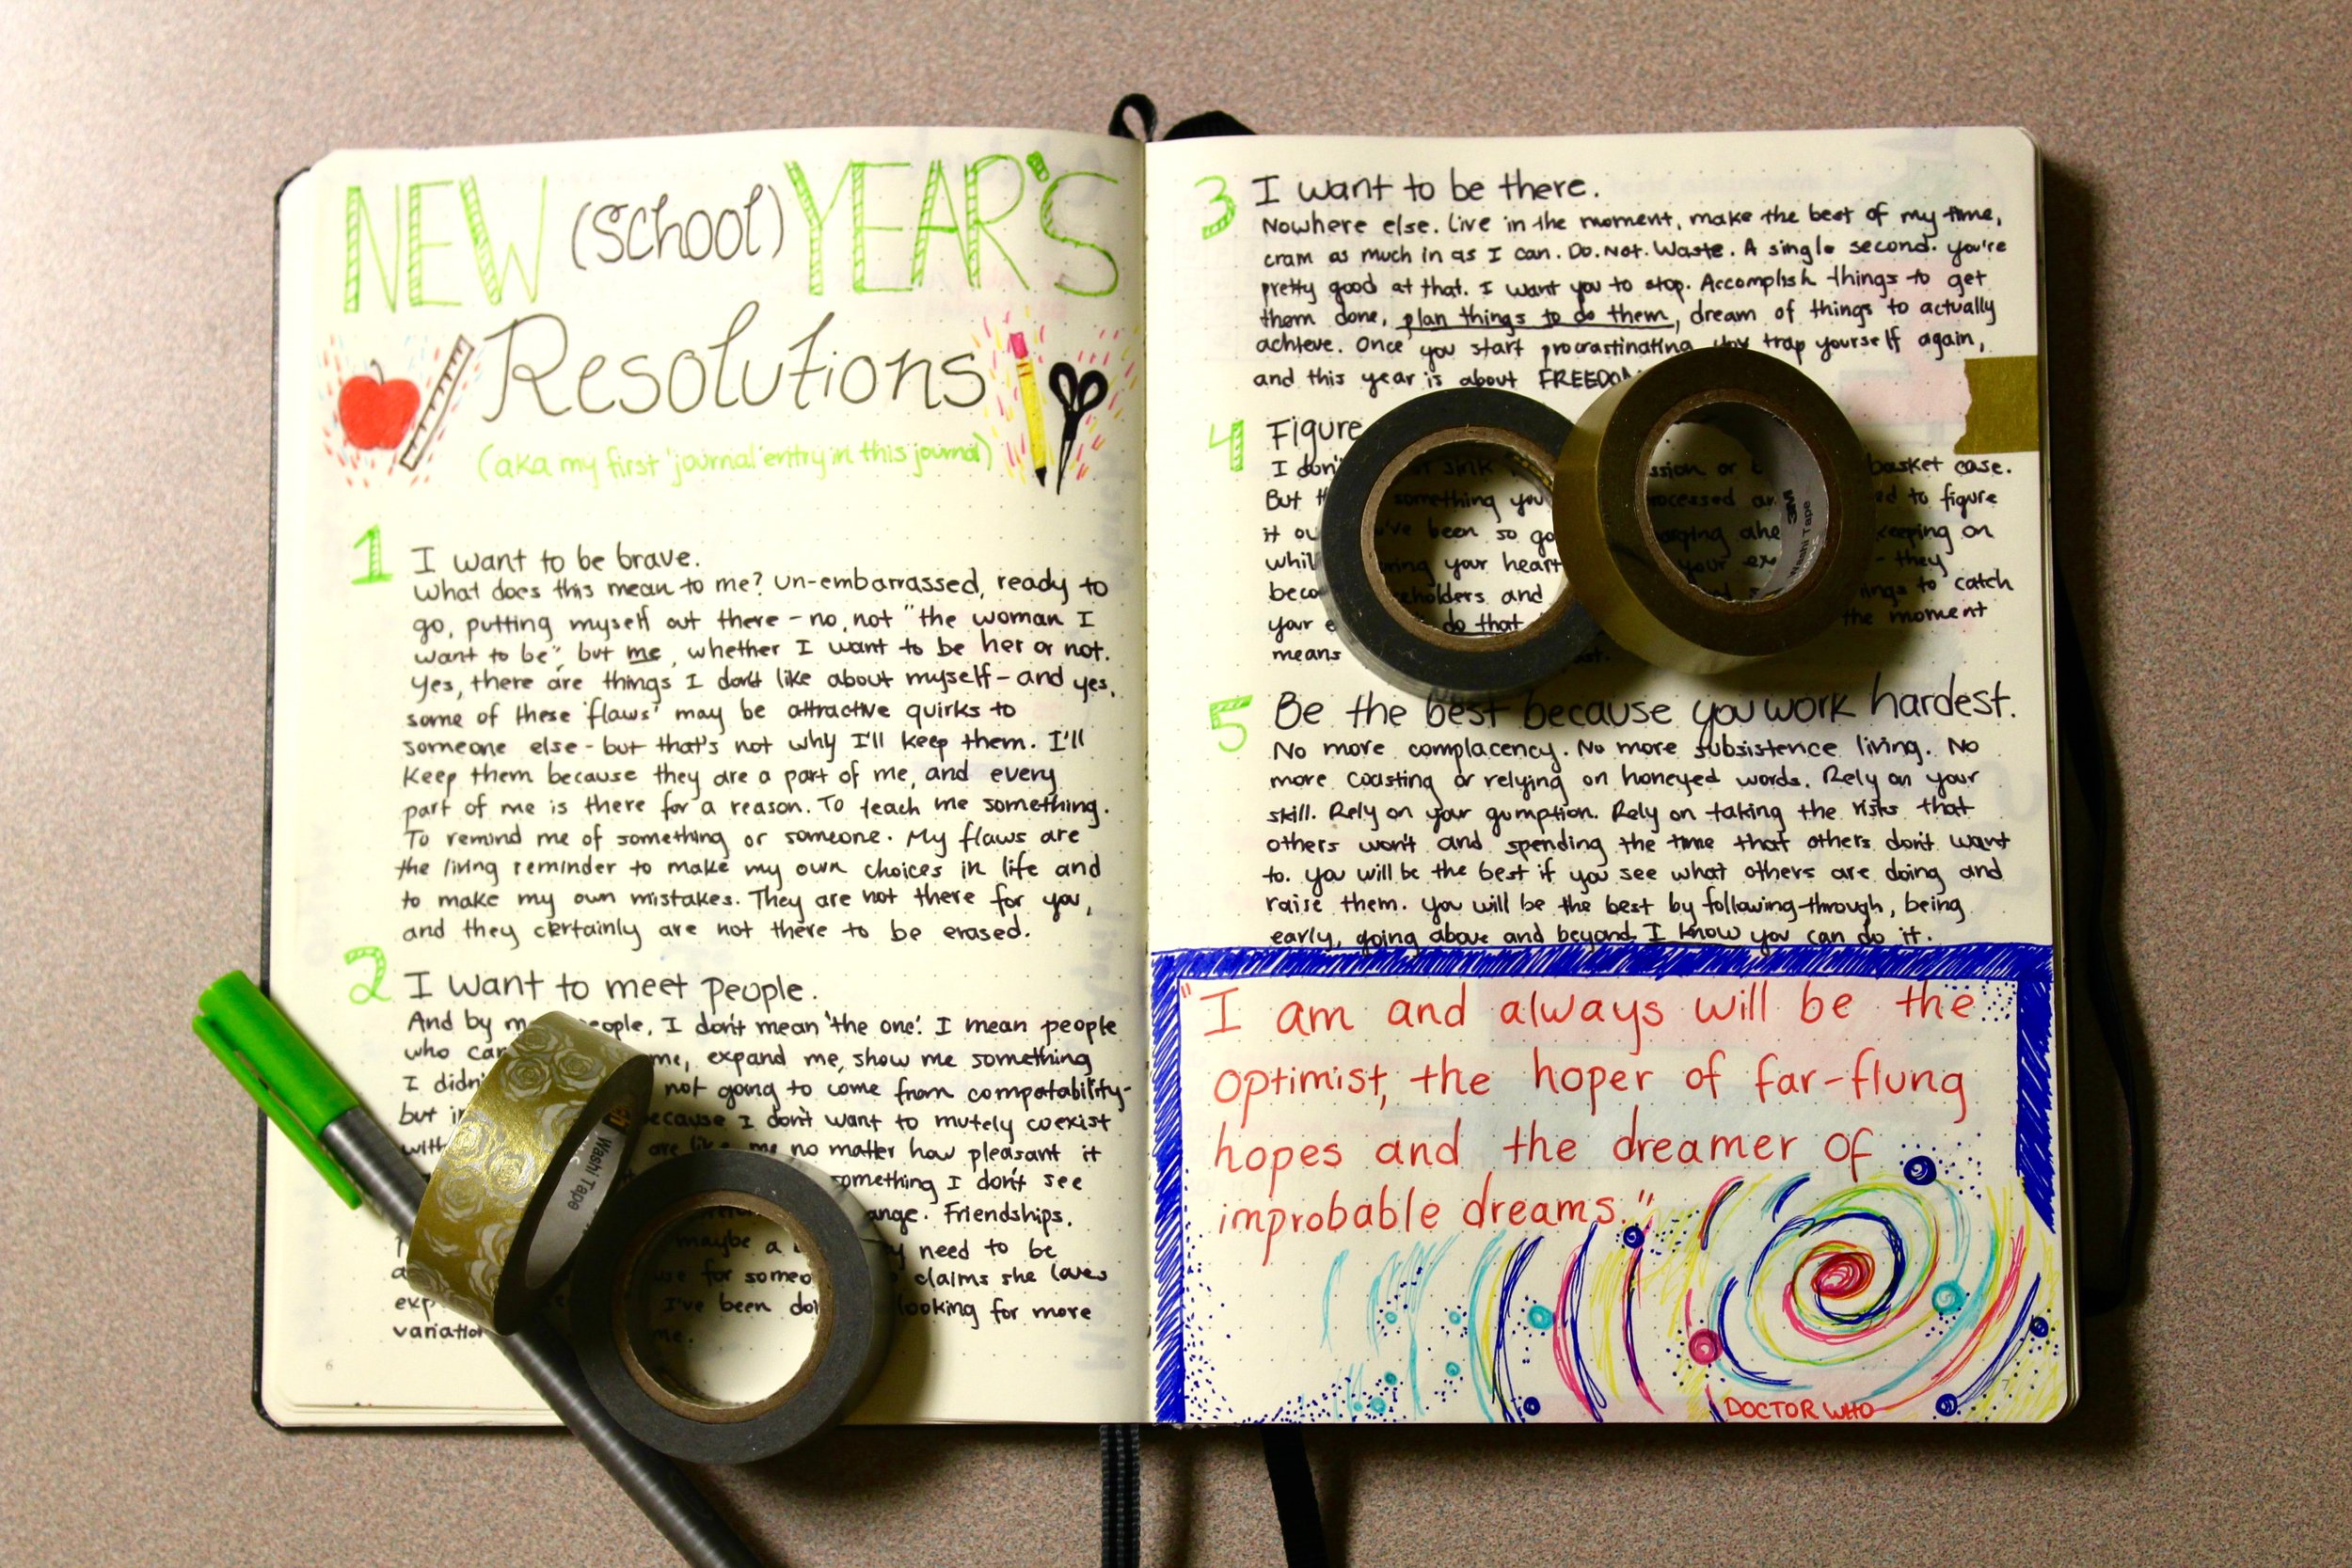 NEW (school) YEAR'S
Resolutions
(aka my first 'journal' entry in this journal)
1 I want to be brave.
What does this mean to me? Un-embarrassed, ready to
go, putting myself out there - no, not "the woman I
want to be", but me, whether I want to be her or not.
Yes, there are things I don't like about myself - and yes,
some of these 'flaws' may be attractive quirks to
someone else - but that's not why I'll keep them. I'll
keep them because they are a part of me, and every
part of me is there for a reason. To teach me something.
To remind me of something or someone. My flaws are
the living reminder to make my own choices in life and
to make my own mistakes. They are not there for you,
and they certainly are not there to be erased.
2 I want to meet people.
And by people, I don't mean 'the one'. I mean people
who can me, expand me, show me something
I didn't not going to come from compatability-
but because I don't want to mutely coexist
with are like me no matter how pleasant it
something I don't see
Friendships.
maybe a need to be
for claims she loves
I've been looking for more
me.
6
3 I want to be there.
Nowhere else. Live in the moment, make the best of my time,
cram as much in as I can. Do. Not. Waste. A single second. You're
pretty good at that. I want you to stop. Accomplish things to get
them done, plan things to do them, dream of things to actually
achieve. Once you start procrastinating you trap yourself again,
and this year is about FREEDOM
4 Figure
I don't sink or basket case.
But something you to figure
it been so keeping on
your heart your they
and to catch
your do that the moment
means
5 Be the best because you work hardest.
No more complacency. No more subsistence living. No
more coasting or relying on honeyed words. Rely on your
skill. Rely on your gumption. Rely on taking the risks that
others won't and spending the time that others don't want
to. You will be the best if you see what others are doing and
raise them. You will be the best by following-through, being
early, going above and beyond. I know you can do it.
"I am and always will be the
optimist, the hoper of far-flung
hopes and the dreamer of
improbable dreams."
DOCTOR WHO
Washi Tape
3M
Washi Tape